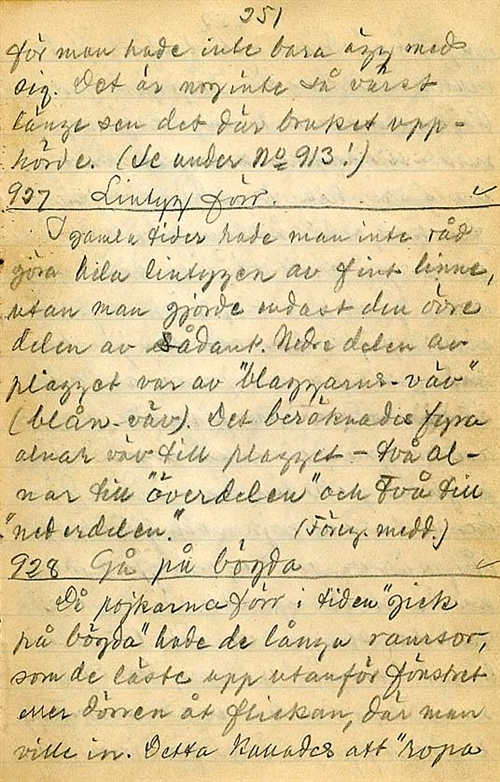 251
för man hade inte bara ägg med
sig. Det är nog inte så värst
länge sen det där bruket upp-
hörde. (Se under No 913!)
927 Lintyg förr.
I gamla tider hade man inte råd
göra hela lintygen av fint linne,
utan man gjorde endast den övre
delen av sådant. Nedre delen av
plagget var av "blaggarns-väv"
(blån-väv). Det beräknades fyra
alnar väv till plagget - två al-
nar till "överdelen" och två till
"nederdelen." (Föreg. medd.)
928 Gå på bögda
Då pojkarna förr i tiden "gick
på bögda" hade de långa ramsor,
som de läste upp utanför fönstret
eller dörren åt flickan, där man
ville in. Detta kallades att "ropa